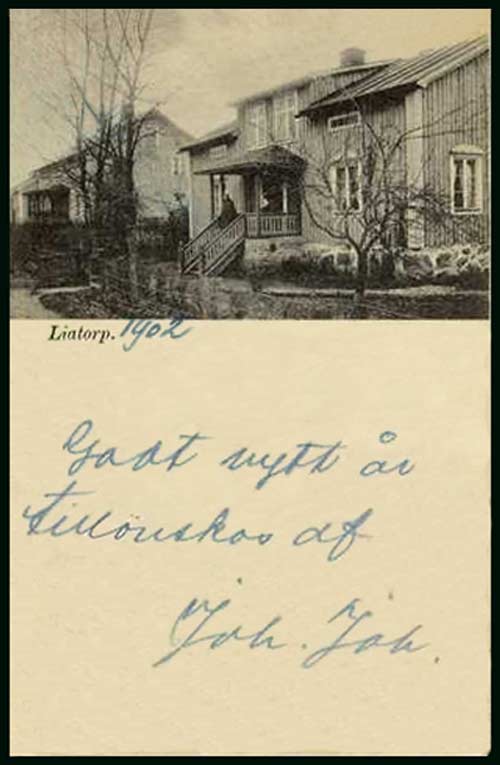 Liatorp. 1902
Godt nytt år
tillönskas af
Joh. Joh.